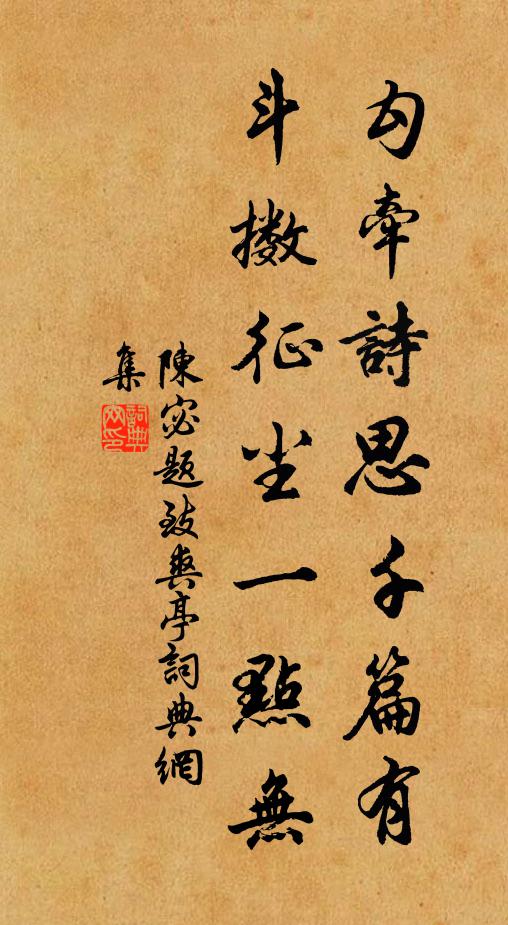 勾牽詩思千篇有
斗擻征尘一點無
陳宓題致爽亭詞典網
集
詞典網印